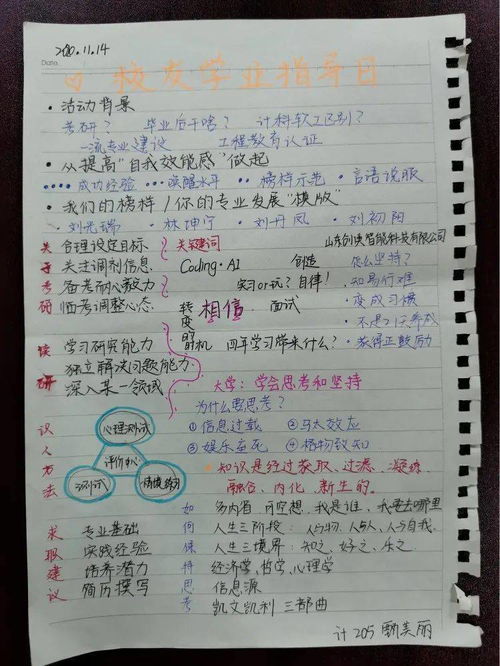 2020.11.14
Date.
校友学业指导日
• 活动背景
考研？ 毕业后干啥？ 计科软工区别？
一流专业建设 工程教育认证
• 从提高"自我效能感"做起
•••• 成功经验 •••• 唤醒水平 •• 榜样示范 • 言语说服
• 我们的榜样 / 你的专业发展"模版"
刘光瑞 • 林坤宁 • 刘丹凤 • 刘初阳
关于考研
合理设定目标
关注调剂信息
备考耐心毅力
师考调整心态
关键词
山东创惠智能科技有限公司
Coding·AI 创造 怎么坚持？
实习or玩？自律！ 知易行难
转变的时机
相信 面试
• 变成习惯
• 不是21天养成
四年学习带来什么？ • 获得正鼓励
读研
学习研究能力
独立解决问题能力
深入某一领域
大学：学会思考和坚持
为什么要思考？
①信息过载 ②马太效应
③娱乐至死 ④格物致知
识人方法
心理测试
评价中心
测试
情境练习
• 知识是经过获取、过滤、凝练
融合、内化、新生的。
如何保持思考
多内省，可空想，我是谁，我要去哪里
人生三阶段：人与物、人与人、人与自我.
人生三境界：知之、好之、乐之.
经济学、哲学、心理学
信息源
凯文凯利 三部曲
求职建议
专业基础
实践经验
培养潜力
简历撰写
计205 甄美丽